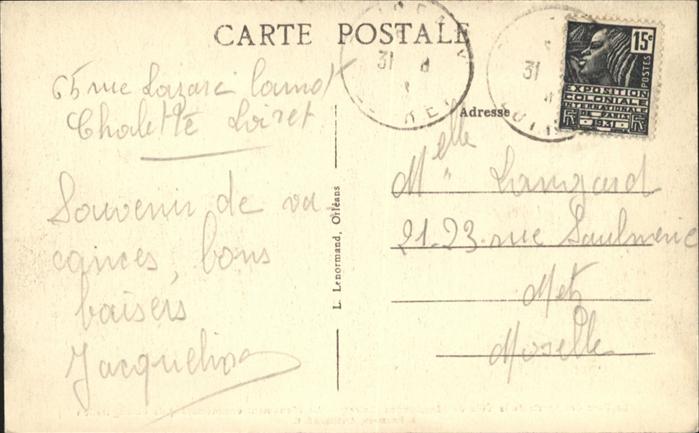 CARTE POSTALE
65 rue Lazare Carnot
Chalette Loiret
Souvenir de va
cances, bons
baisers
Jacqueline
L. Lenormand, Orléans
Adresse
Melle Langard
21-23 rue Saulnerie
Metz
Moselle
31
31
15c
POSTES
EXPOSITION
COLONIALE
INTERNATIONALE
DE PARIS
1931
RF